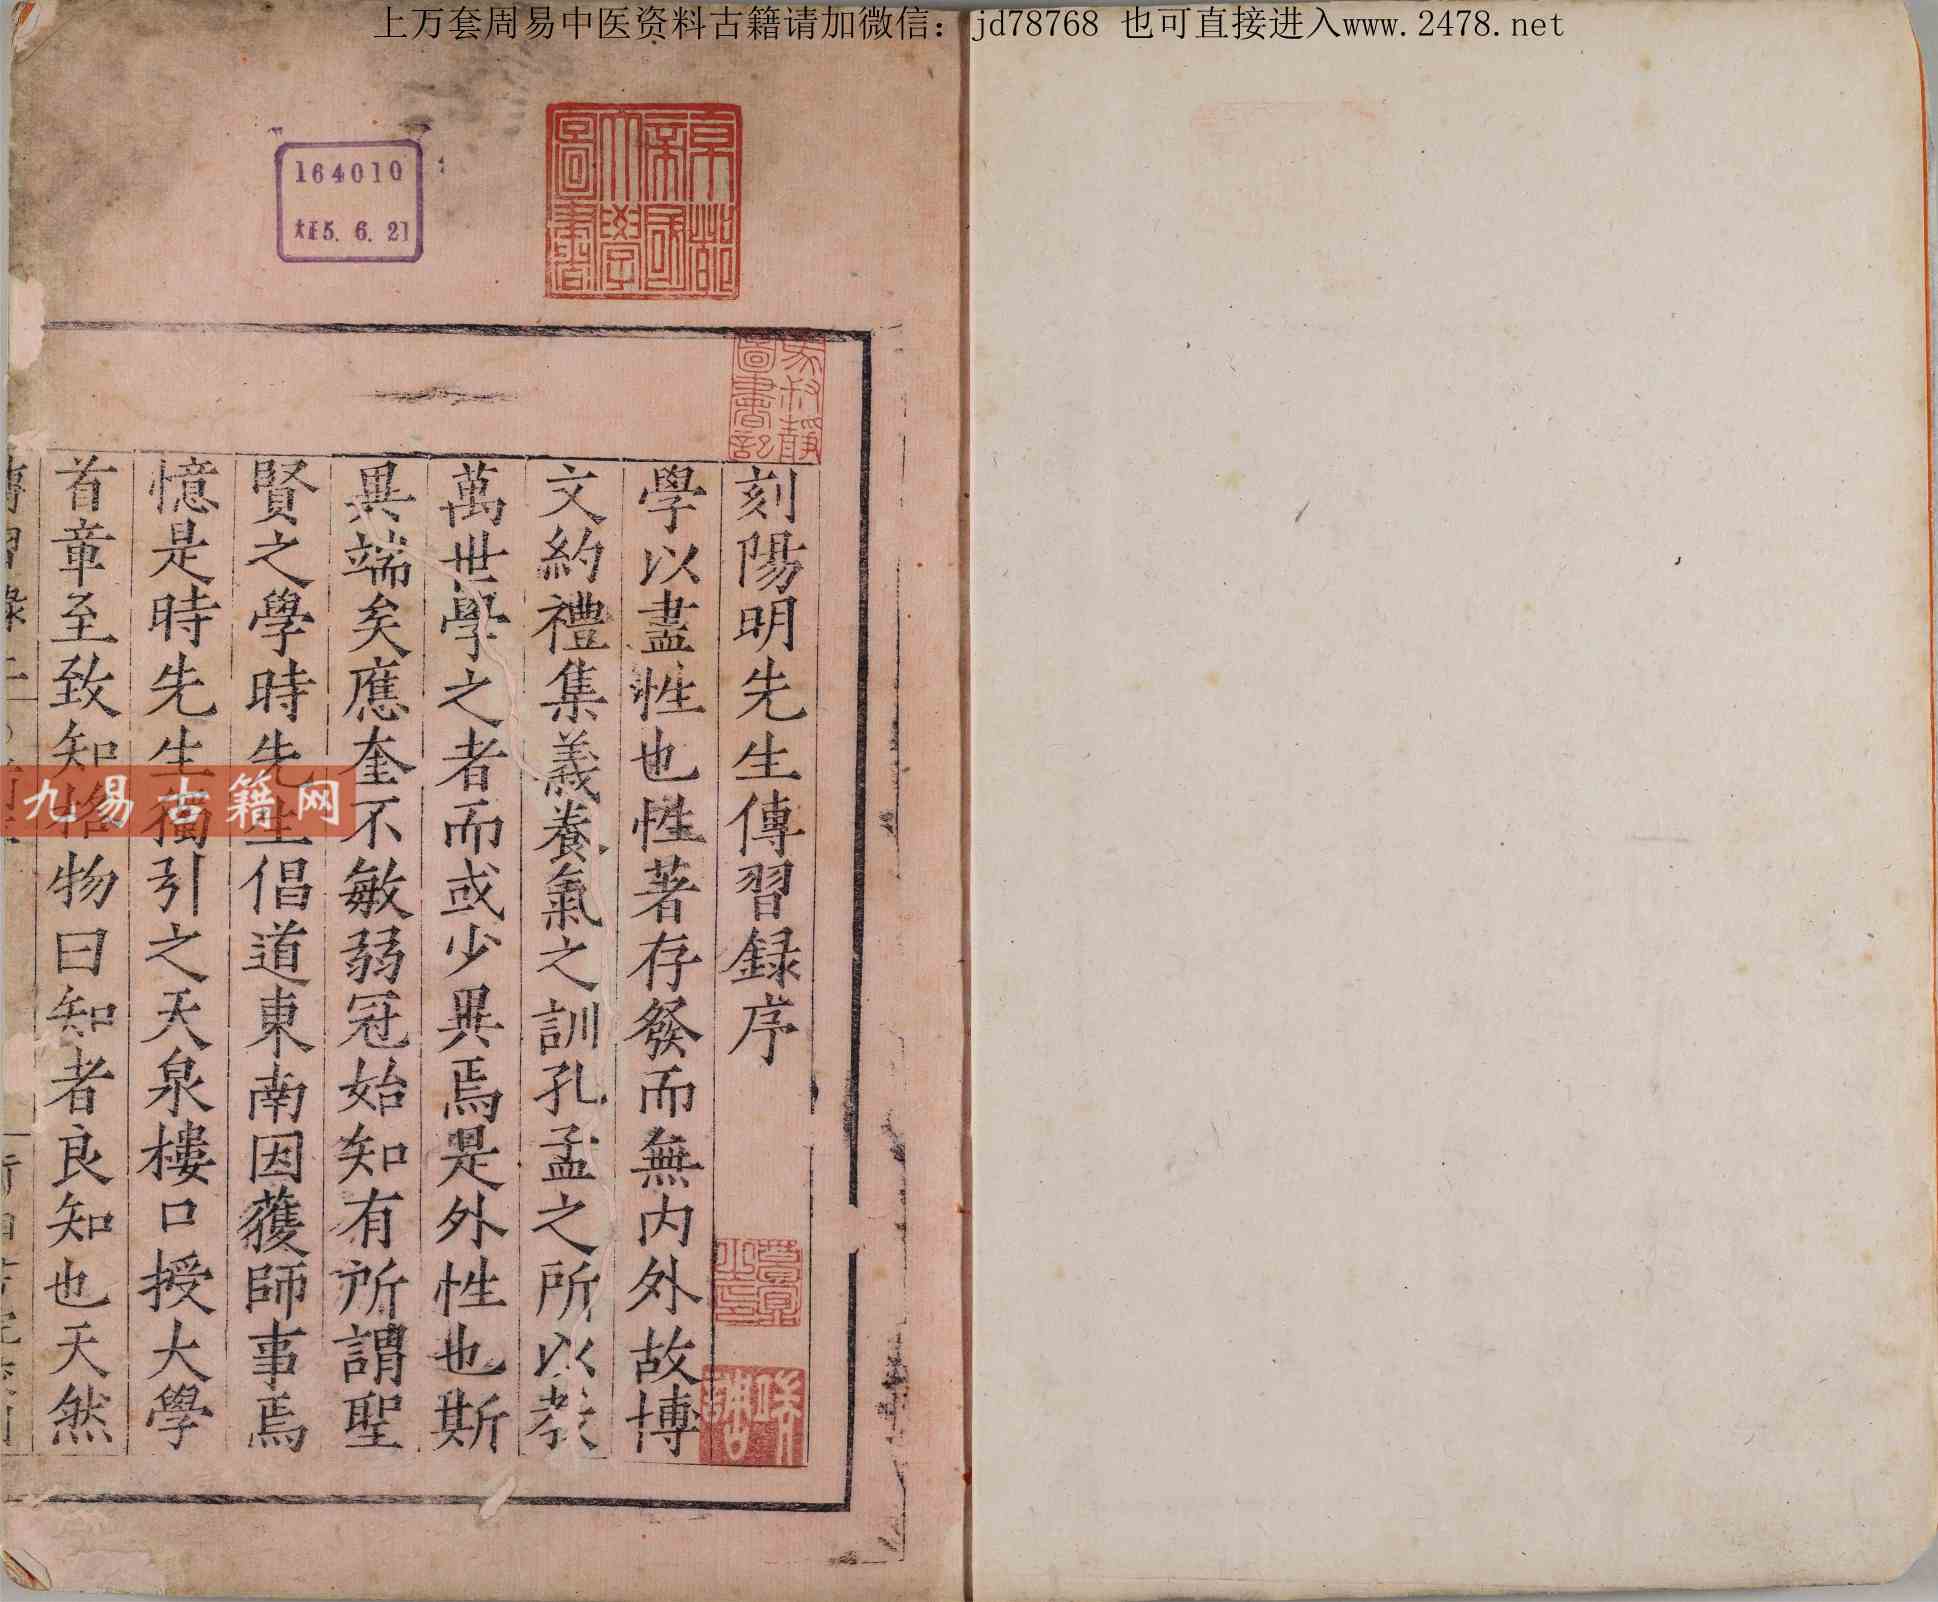 上万套周易中医资料古籍请加微信：jd78768 也可直接进入www.2478.net
164010
大正5. 6. 21
京都
帝國
大學
圖書
圖書記
刻陽明先生傳習録序
學以盡性也性著存發而無内外故博
文約禮集義養氣之訓孔孟之所以教
萬世學之者而或少異焉是外性也斯
異端矣應奎不敏弱冠始知有所謂聖
賢之學時先生倡道東南因蒦師事焉
憶是時先生獨引之天泉樓口授大學
首章至致知格物曰知者良知也天然
九易古籍网